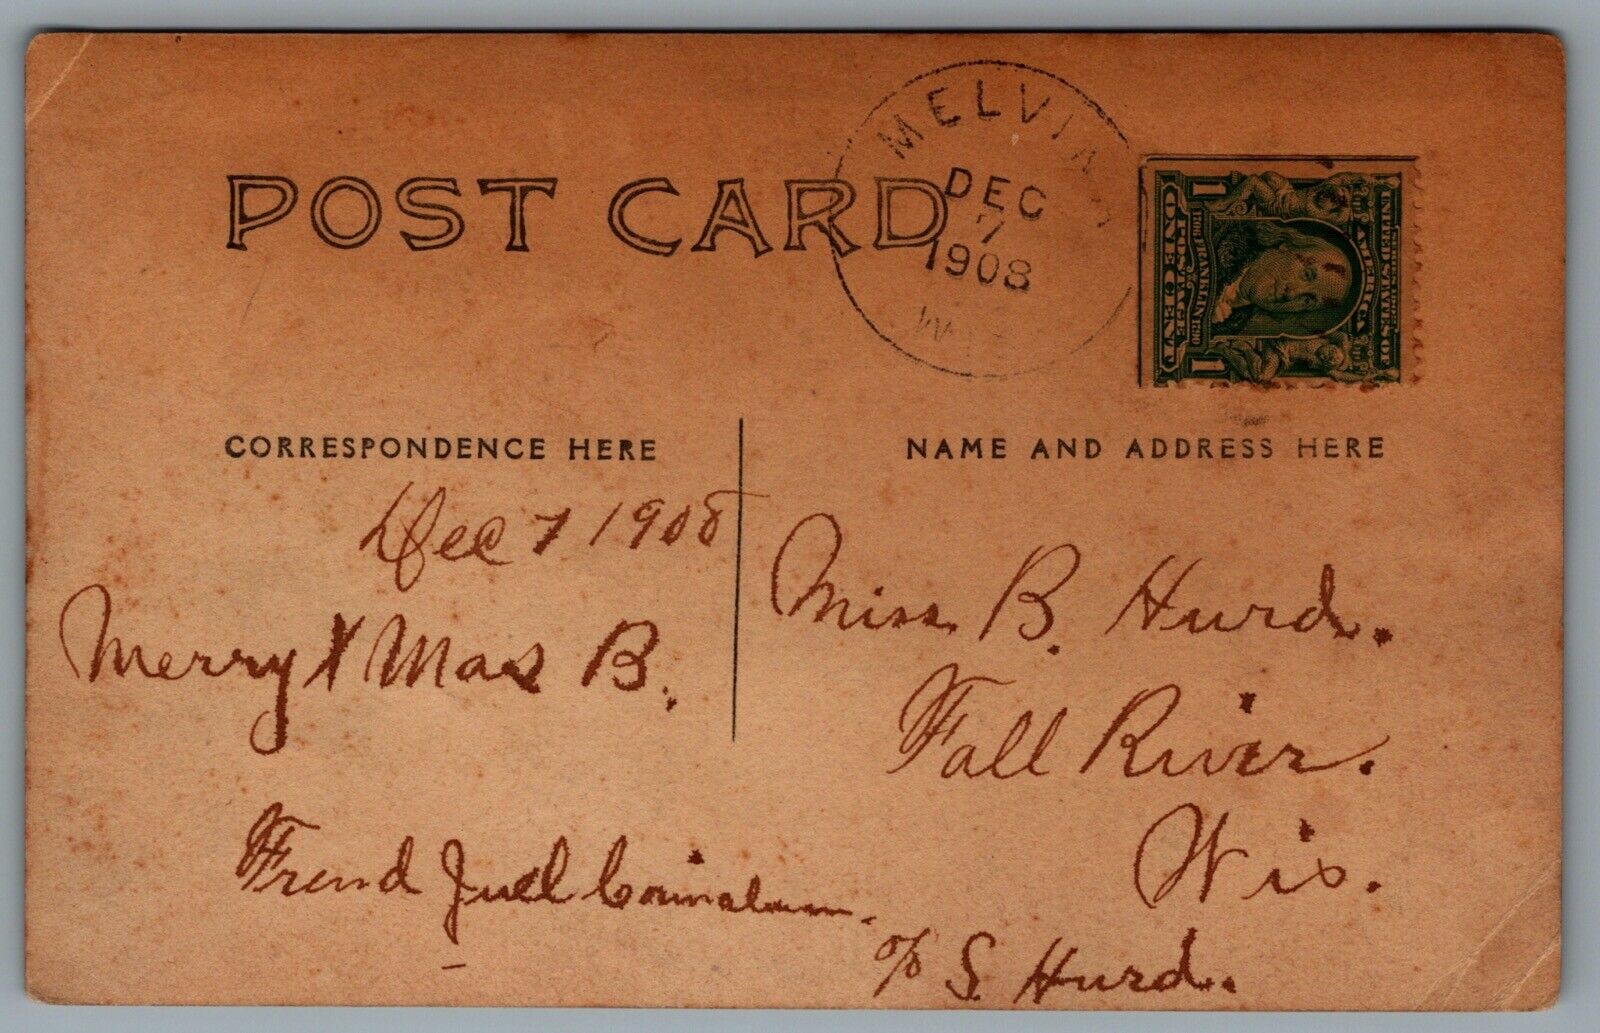 POST CARD
MELVINA
DEC
7
1908
WIS
UNITED STATES OF AMERICA
1 1
POSTAGE
ONE CENT
CORRESPONDENCE HERE
NAME AND ADDRESS HERE
Dec 7 1908
Merry X Mas B.
Frend Juel
Miss B. Hurd.
Fall River.
Wis.
c/o S. Hurd.